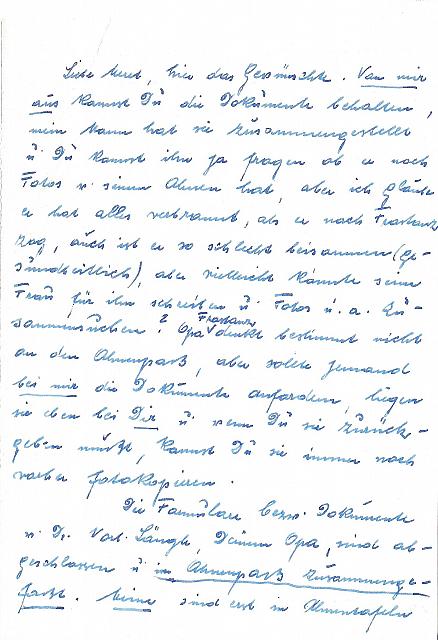 Liebe , hier das Gewünschte. Von mir
aus kannst Du die Dokumente behalten,
mein Mann hat sie zusammengestellt
u. Du kannst ihn ja fragen ob er noch
Fotos v. seinen Ahnen hat, aber ich glaube
er hat alles verbrannt, als er nach Frastanz
zog, auch ist er so schlecht beisammen (ge-
sundheitlich), aber vielleicht könnte seine
Frau für ihn schreiben u. Fotos u. a. zu-
sammensuchen? Opa Frastanz denkt bestimmt nicht
an den Ahnenpaß, aber sollte jemand
bei mir die Dokumente anfordern, liegen
sie eben bei Dir u. wenn Du sie zurück-
geben mußt, kannst Du sie immer noch
vorher fotokopieren.
Die Formulare bezw. Dokumente
v. Dr. Längle, Deinem Opa, sind ab-
geschlossen u. im Ahnenpaß zusammenge-
faßt. Meine sind erst in Ahnentafeln